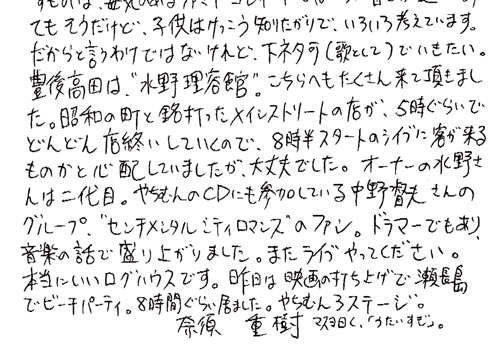 てもそうだけど、子供はけっこう知りたがりで、いろいろ考えています。
だからと言うわけではないけれど、下ネタも(歌として)でいきたい。
豊後高田は、"水野理容館"。こちらへもたくさん来て頂きまし
た。昭和の町と銘打ったメインストリートの店が、5時ぐらいで
どんどん店終いしていくので、8時半スタートのライブに客が来る
ものかと心配していましたが、大丈夫でした。オーナーの水野さ
んは二代目。やちむんのCDにも参加している中野督夫さんの
グループ、"センチメンタルシティロマンス"のファン。ドラマーでもあり、
音楽の話で盛り上がりました。またライブやってください。
本当にいいログハウスです。昨日は映画の打ち上げで瀬長島
でビーチパーティ。8時間ぐらい居ました。やちむん3ステージ。
奈須 重樹 マスヨ曰く、「うたいすぎ」。